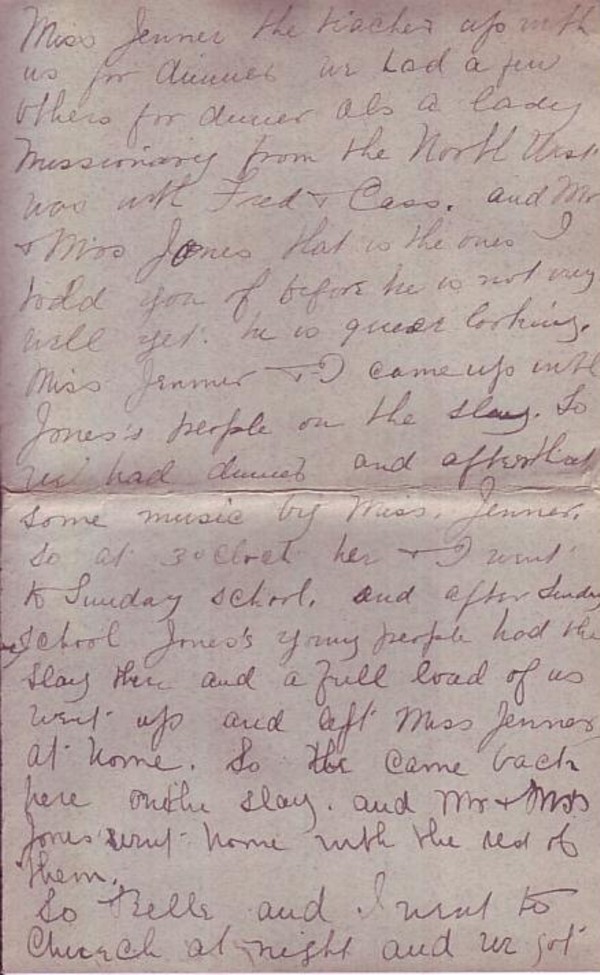 Miss Jenner the teacher up with
us for dinner we had a few
others for dinner als a lady
Missionary from the North West
was with Fred & Cass. and Mr
& Mrs Jones that is the ones I
told you of before he is not very
well yet. he is queer looking.
Miss Jenner & I came up with
Jones's people on the slay. So
we had dinner and after that
some music by Miss. Jenner.
So at 3 oclock her & I went
to Sunday school. and after Sunday
school Jones's young people had the
slay there and a full load of us
went up and left Miss Jenner
at home. So the came back
here on the slay. and Mr & Mrs
Jones went home with the rest of
them.
So Belle and I went to
Church at night and we got